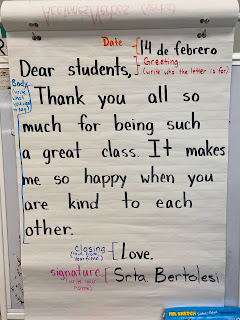 Date
14 de febrero
Dear students,
Greeting
(write who the letter is for)
Body
(write what you want to say)
Thank you all so
much for being such
a great class. It makes
me so happy when you
are kind to each
other.
closing
Love.
signature
(write your name)
Srta. Bertolesi
MR. SKETCH